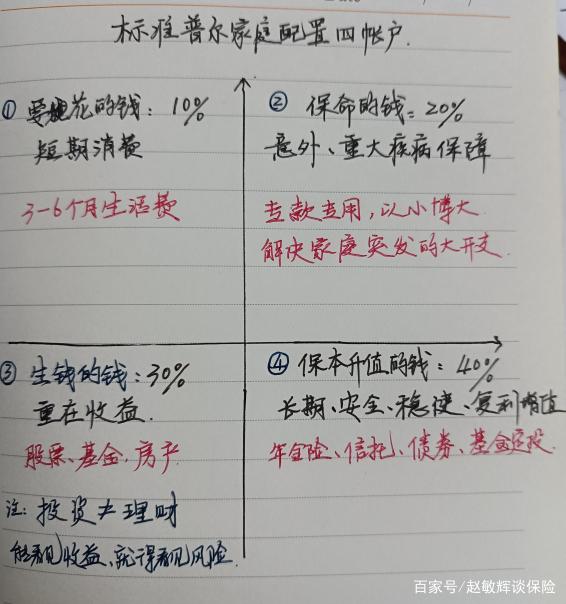 标准普尔家庭配置四帐户.
① 要花的钱: 10%
短期消费
3-6个月生活费
② 保命的钱: 20%
意外、重大疾病保障
专款专用,以小博大
解决家庭突发的大开支.
③ 生钱的钱: 30%
重在收益.
股票、基金.房产
注: 投资≠理财
能看见收益、就得看见风险.
④ 保本升值的钱: 40%
长期、安全、稳健、复利增值
年金险、信托、债券、基金定投.
百家号/赵敏辉谈保险